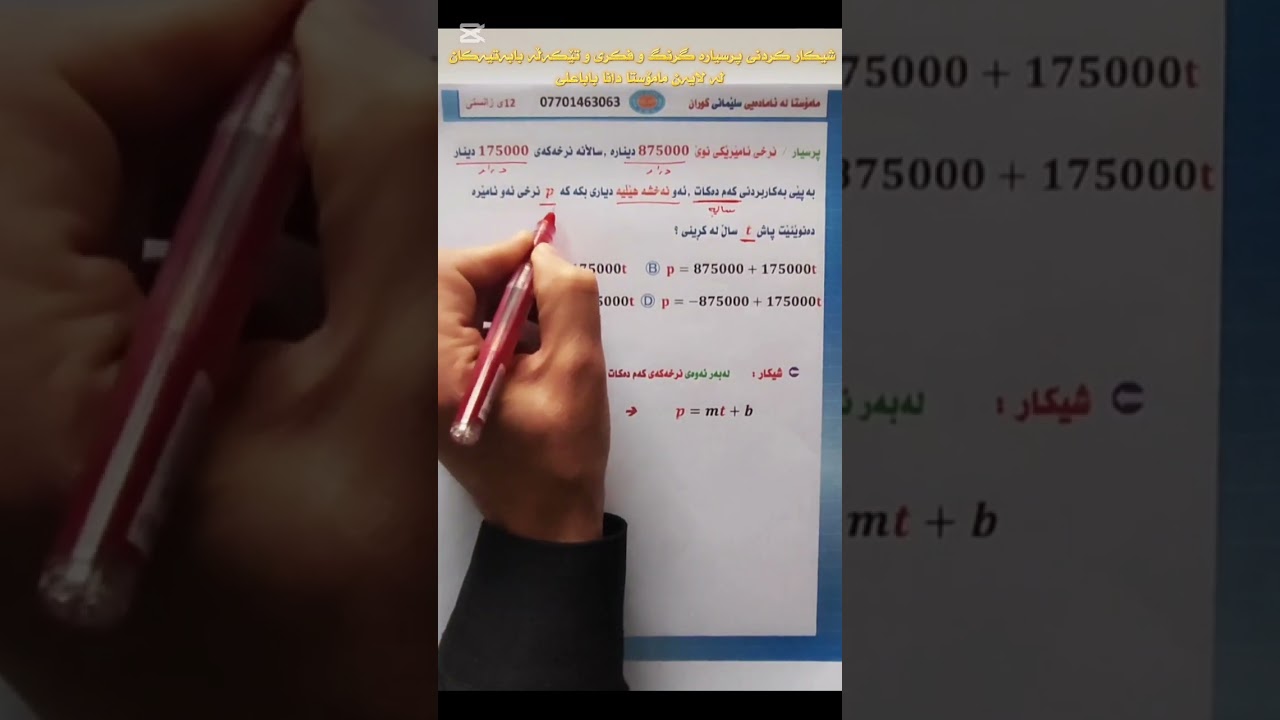 شیکار کردنی پرسیارە گرنگ و فکری و تێکەڵە بابەتیەکان
لە لایەن مامۆستا دانا باباعلی
مامۆستا لە ئامادەیی سلێمانی کوران 07701463063 12ی زانستی
پرسیار / نرخی ئامێرێکی نوێ 875000 دینارە ,سالانە نرخەکەی 175000 دینار
بە پێی بەکاربردنی کەم دەکات ,ئەو نەخشە هێڵیە دیاری بکە کە p نرخی ئەو ئامێرە
دەنوێنێت پاش t ساڵ لە کڕینی ؟
175000t Ⓑ p = 875000 + 175000t
5000t Ⓓ p = −875000 + 175000t
شیکار : لەبەر ئەوەی نرخەکەی کەم دەکات
➔ p = mt + b